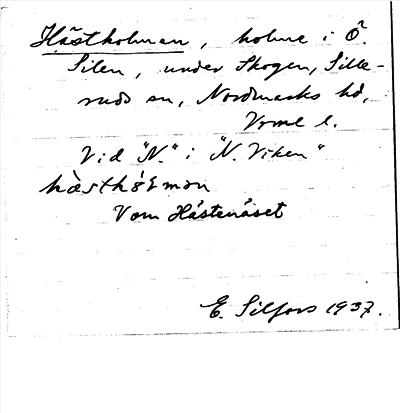 Hästholman, holme i Ö.
Silen, under Skogen, Sille-
ruds sn, Nordmarks hd,
Vrml l.
Vid "N." i "N. Viken"
Vom Hästenäset
E. Silfors 1937.